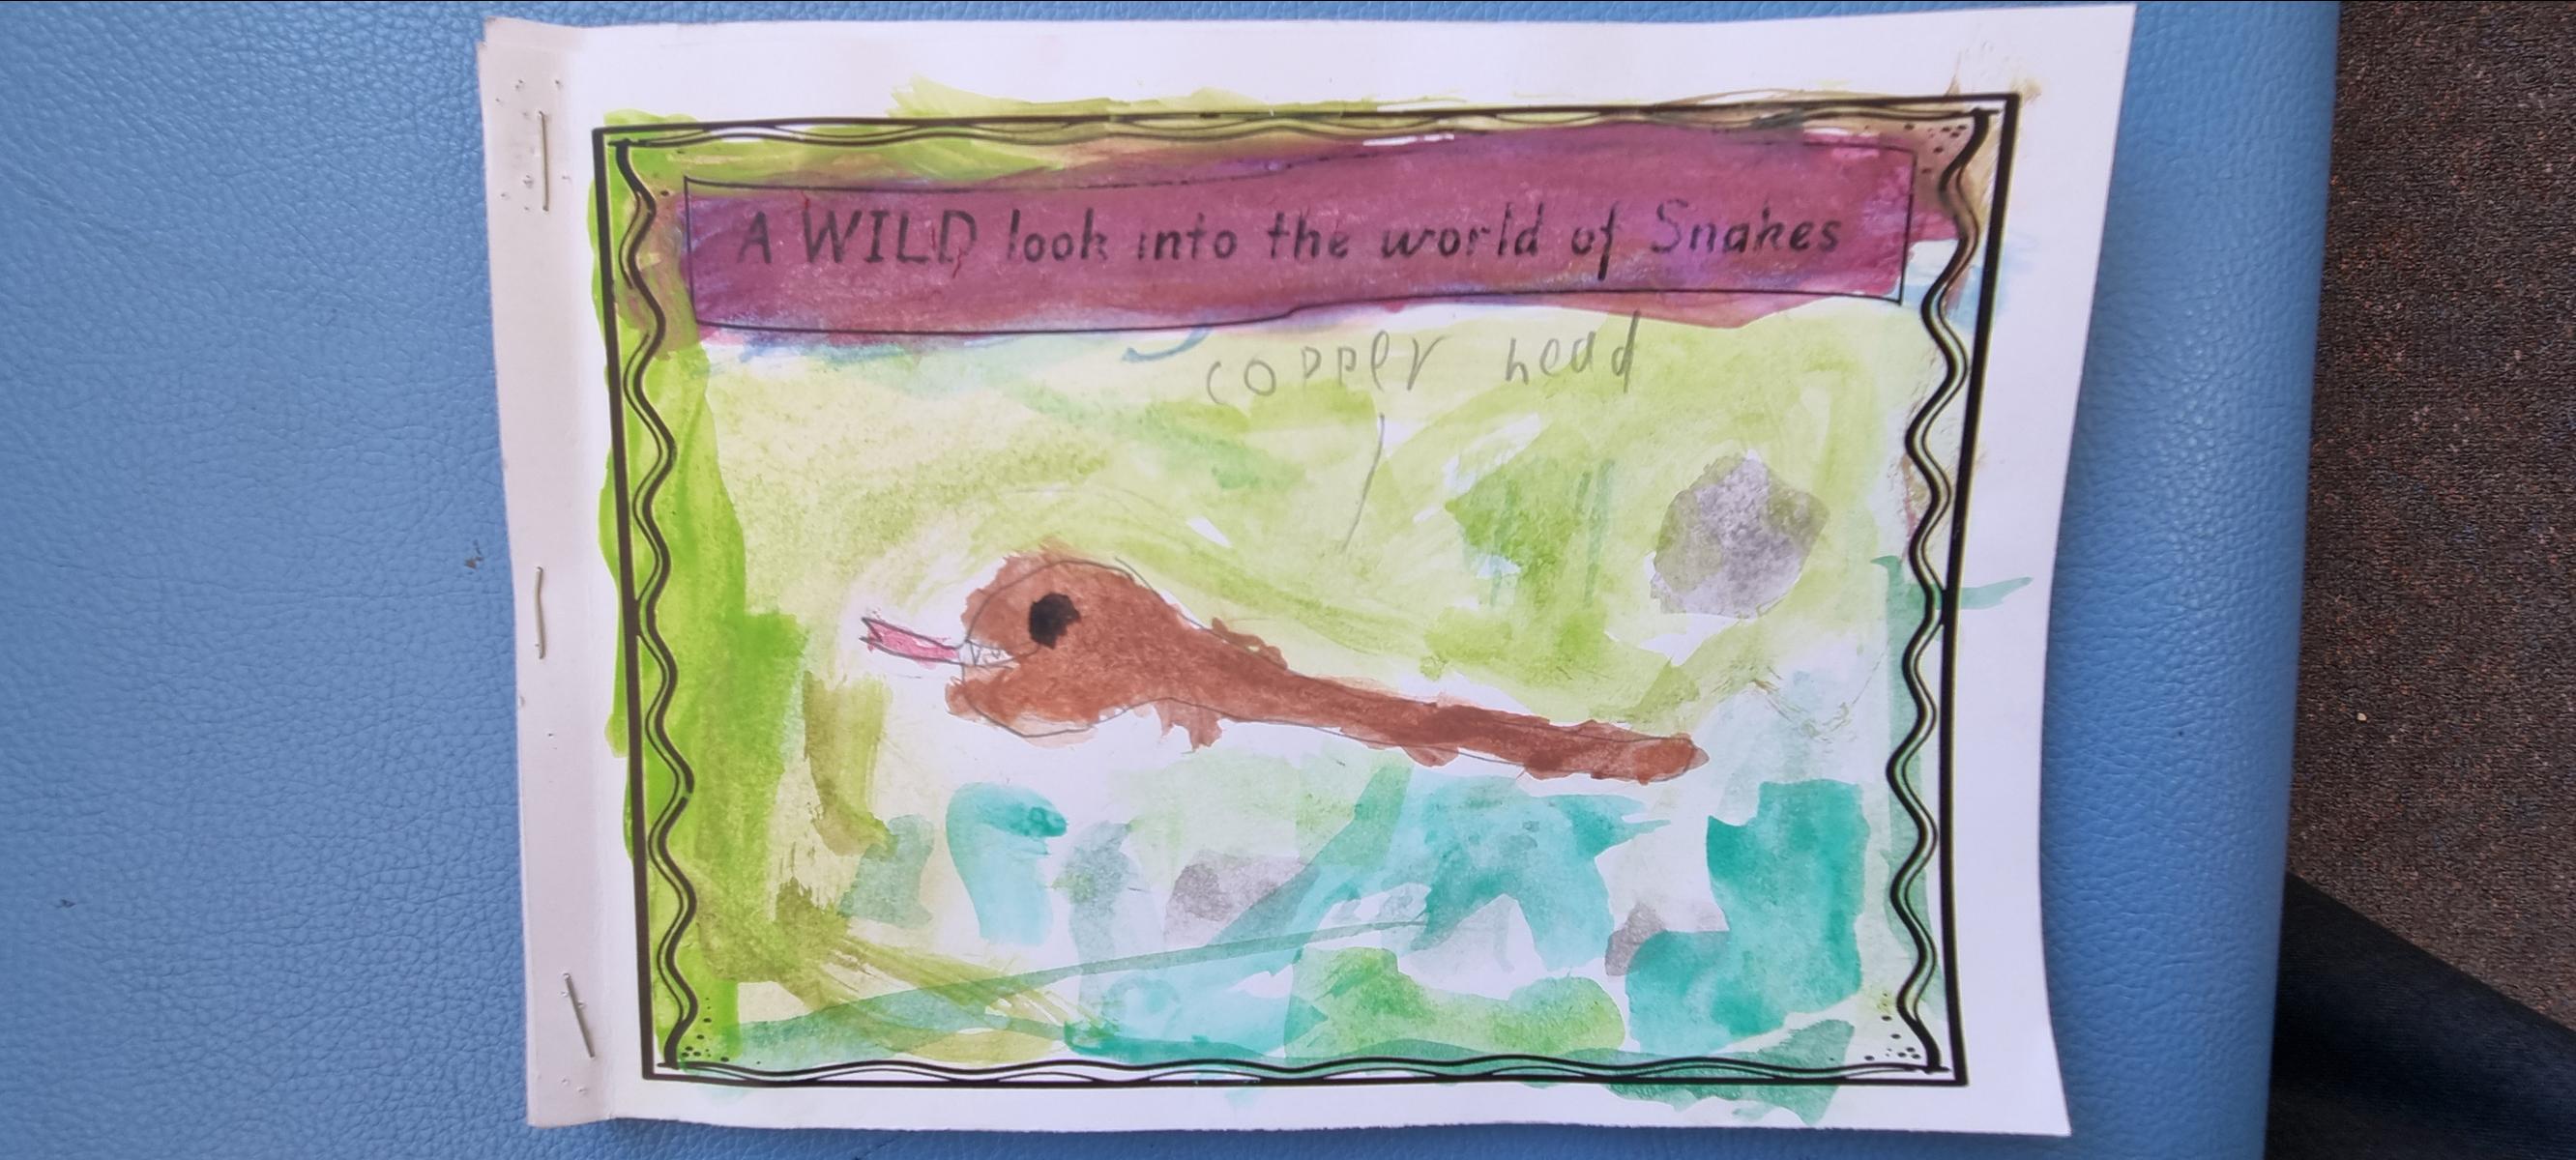 A WILD look into the world of Snakes
copper head